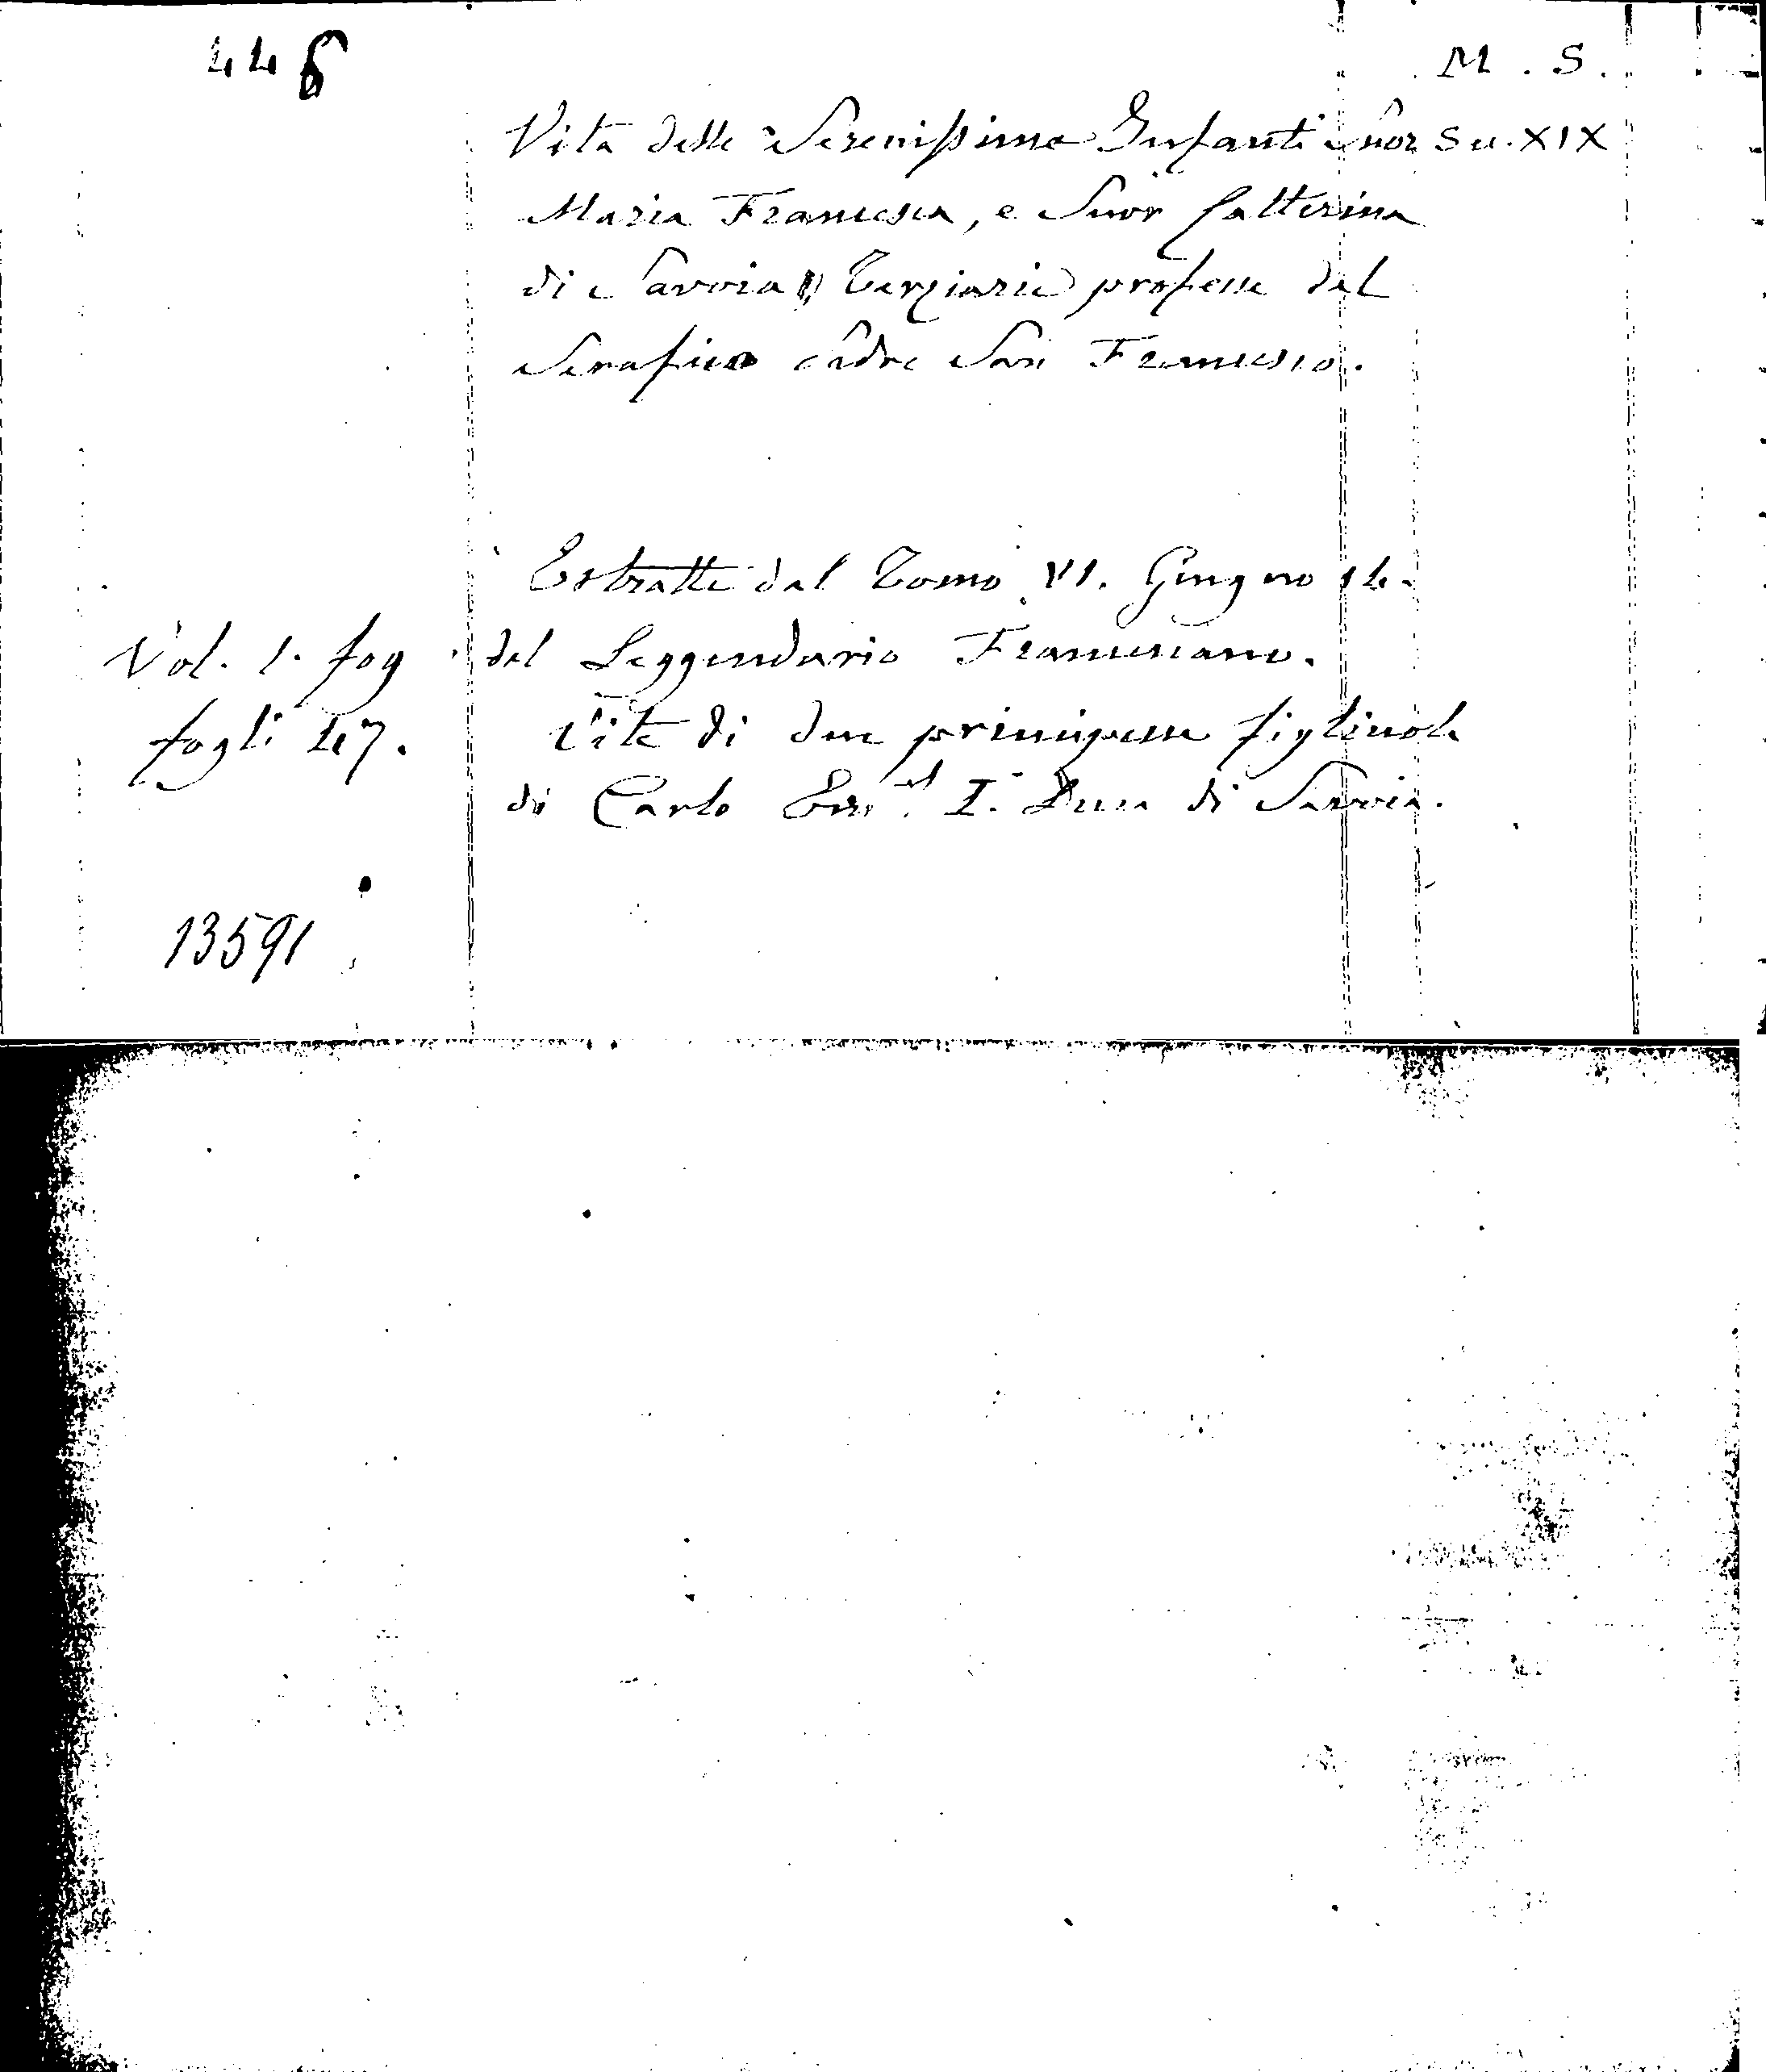 448
M. S.
Vita delle Serenissime Infanti Suor Sec. XIX
Maria Francesca, e Suor Catterina
di Savoia Terziarie professe del
Serafico Padre San Francesco.
Estratte dal Tomo VI. Giugno 14.
Vol. 1. fog. del Leggendario Francescano.
fogli 47. Vite di due principesse figliuole
di Carlo Em.el I. Duca di Savoia.
13591